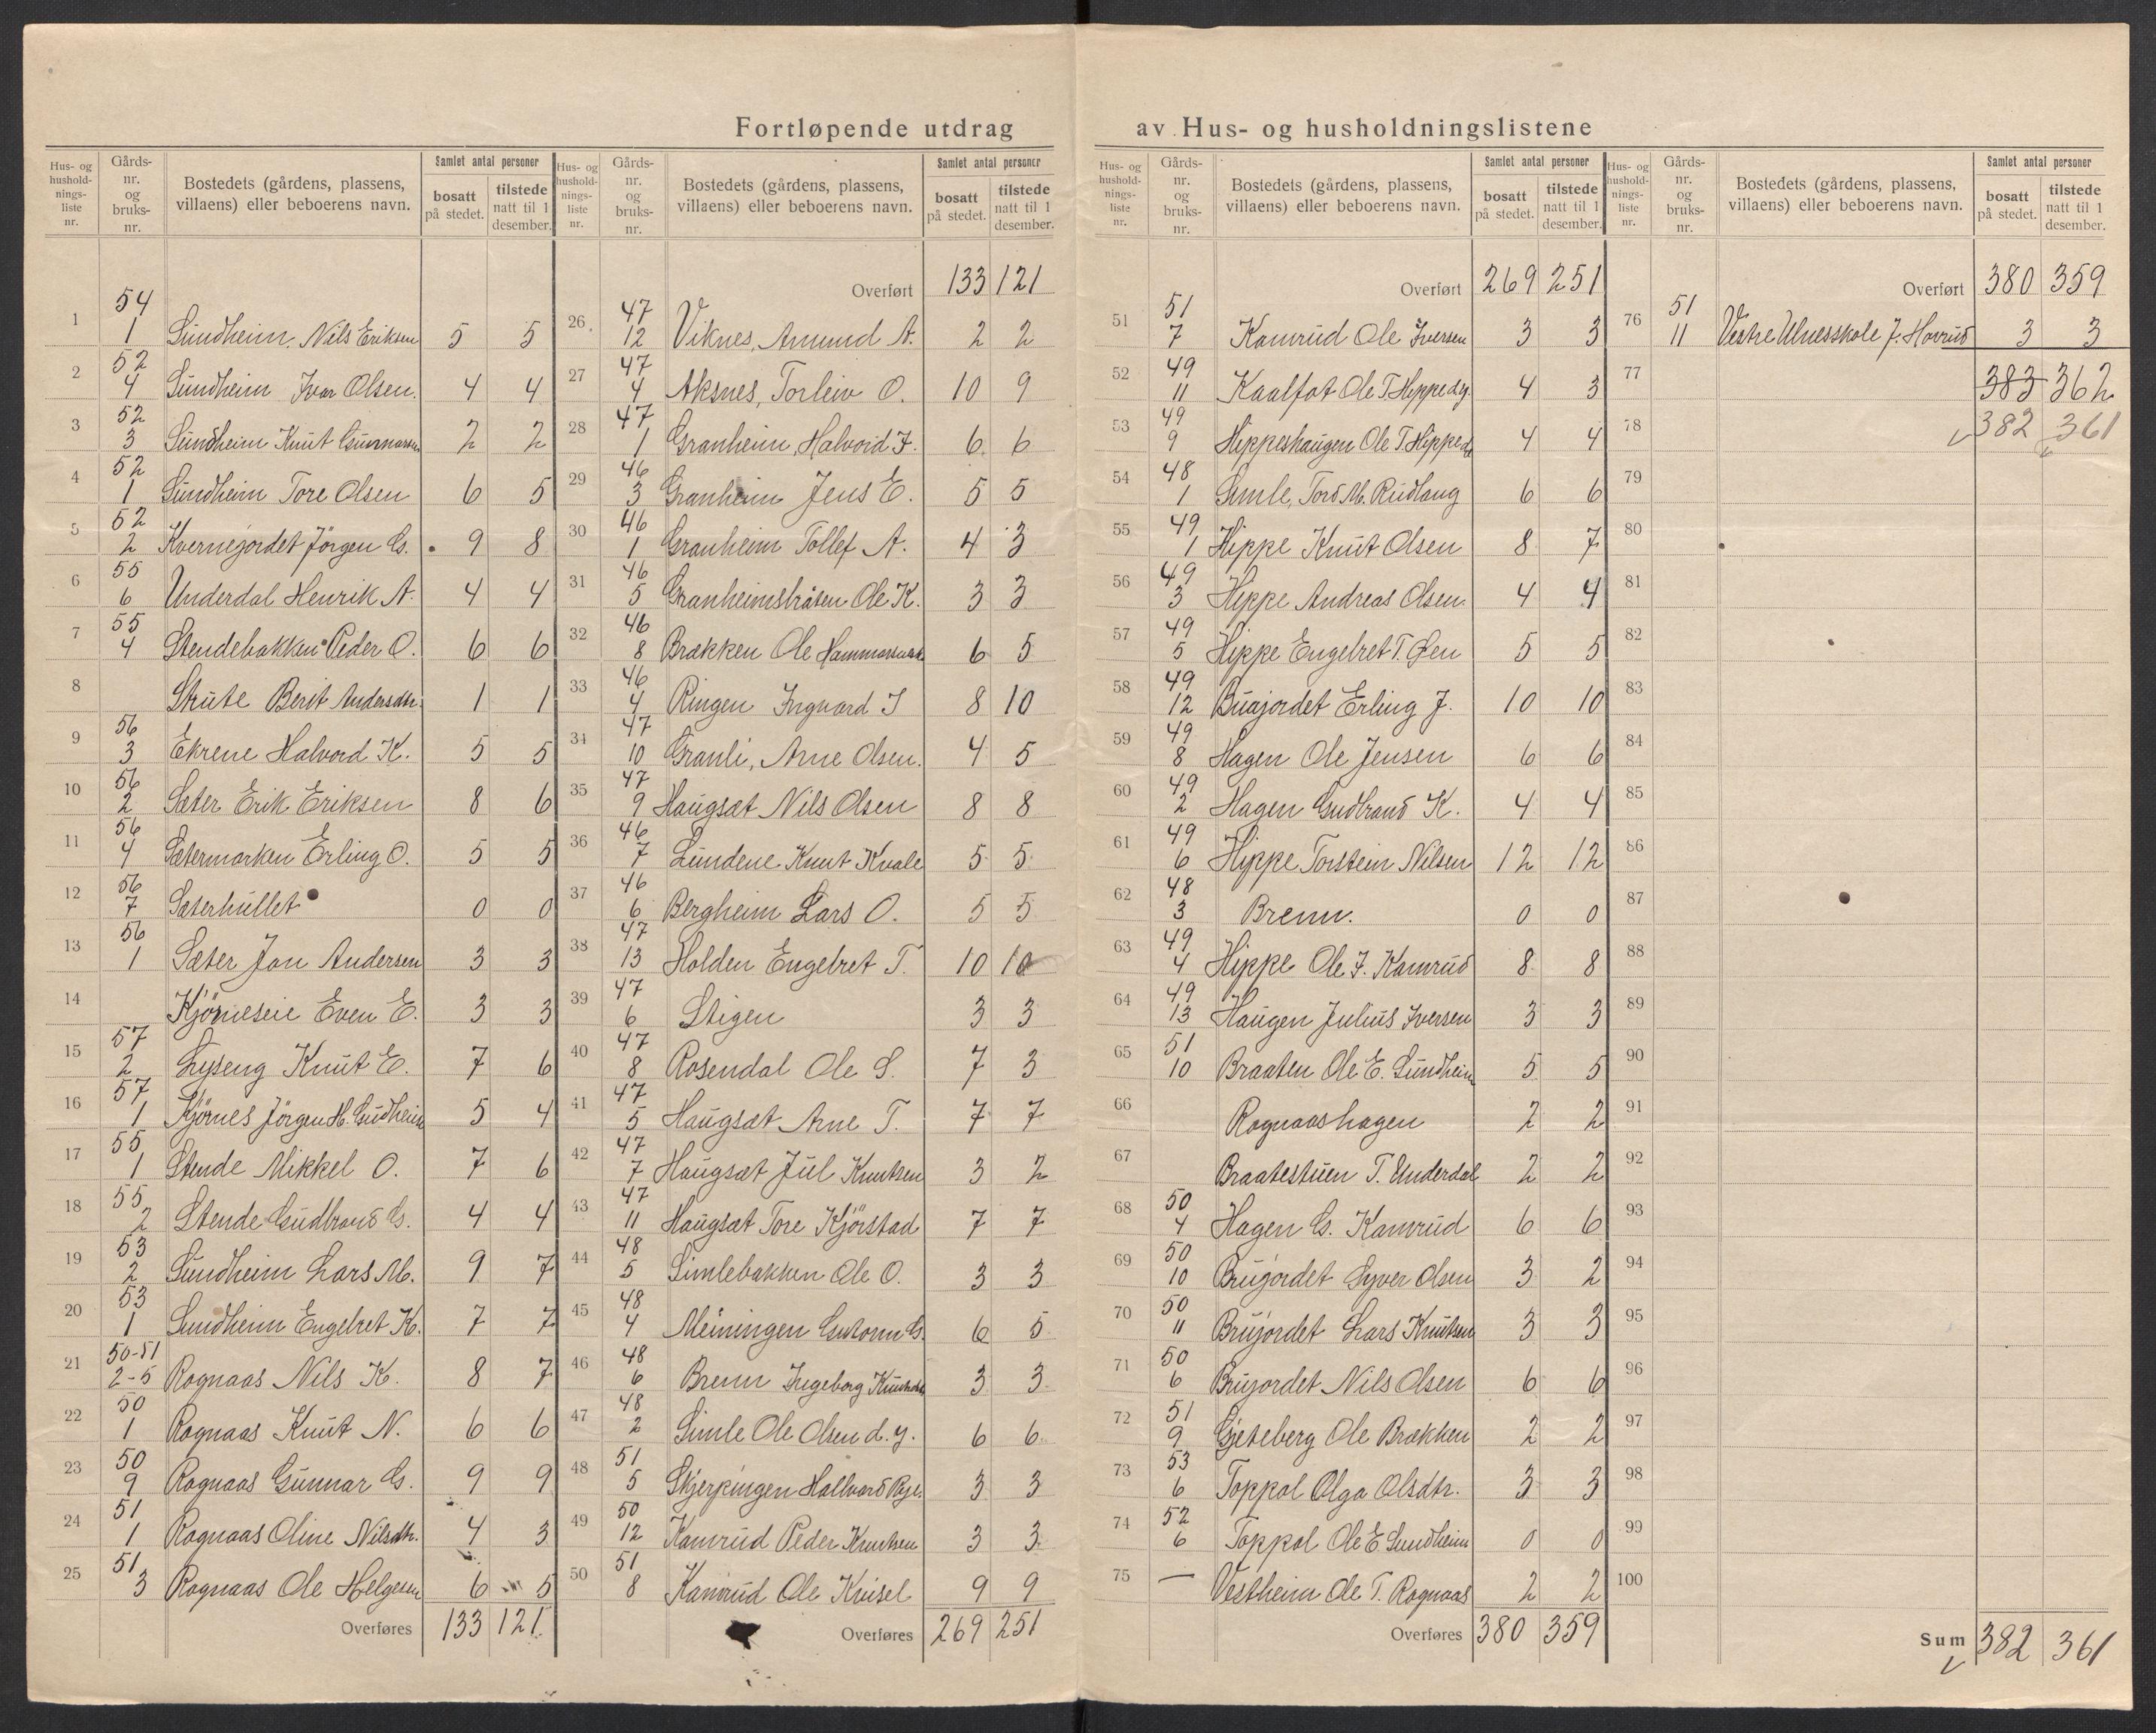 Fortløpende utdrag av Hus- og husholdningslistene
Hus- og hushold-nings-liste nr. | Gårds-nr. og bruks-nr. | Bostedets (gårdens, plassens, villaens) eller beboerens navn. | Samlet antal personer | bosatt på stedet. | tilstede natt til 1 desember.
1 | 54 1 | Sundheim, Nils Eriksen | 5 | 5
2 | 52 4 | Sundheim Ivar Olsen. | 4 | 4
3 | 52 3 | Sundheim Knut Gunnarsen | 2 | 2
4 | 52 1 | Sundheim Tore Olsen | 6 | 5
5 | 52 2 | Kvernejordet Jörgen G. | 9 | 8
6 | 55 6 | Underdal Henrik A. | 4 | 4
7 | 55 4 | Stendebakken Peder O. | 6 | 6
8 | Skute Berit Andersdtr. | 1 | 1
9 | 56 3 | Ekrene Halvord K. | 5 | 5
10 | 56 2 | Sæter Erik Eriksen | 8 | 6
11 | 56 4 | Sætermarken Erling O. | 5 | 5
12 | 56 7 | Sæterhullet | 0 | 0
13 | 56 1 | Sæter Jon Andersen | 3 | 3
14 | Kjörneseie Even E. | 3 | 3
15 | 57 2 | Lyseng Knut E. | 7 | 6
16 | 57 1 | Kjörnes Jörgen H. Sundheim | 5 | 4
17 | 55 1 | Stende Mikkel O. | 7 | 6
18 | 55 2 | Stende Gudbrand G. | 4 | 4
19 | 53 2 | Sundheim Lars M. | 9 | 7
20 | 53 1 | Sundheim Engebret K. | 7 | 7
21 | 50-51 2-5 | Rognaas Nils K. | 8 | 7
22 | 50 1 | Rognaas Knut N. | 6 | 6
23 | 50 9 | Rognaas Gunnar G. | 9 | 9
24 | 51 1 | Rognaas Oline Nilsdtr. | 4 | 3
25 | 51 3 | Rognaas Ole Helgesen | 6 | 5
Overføres | 133 | 121
Hus- og hushold-nings-liste nr. | Gårds-nr. og bruks-nr. | Bostedets (gårdens, plassens, villaens) eller beboerens navn. | Samlet antal personer | bosatt på stedet. | tilstede natt til 1 desember.
Overført | 133 | 121
26 | 47 12 | Viknes, Amund A. | 2 | 2
27 | 47 4 | Aksnes, Torleiv O. | 10 | 9
28 | 47 1 | Granheim, Halvord J. | 6 | 6
29 | 46 3 | Granheim Jens E. | 5 | 5
30 | 46 1 | Granheim Tollef A. | 4 | 3
31 | 46 5 | Granheimsbråten Ole K. | 3 | 3
32 | 46 8 | Brækken Ole | 6 | 5
33 | 46 4 | Ringen Ingvard J | 8 | 10
34 | 47 10 | Granli, Arne Olsen. | 4 | 5
35 | 47 9 | Haugsæt Nils Olsen | 8 | 8
36 | 46 7 | Lundene Knut Kvale | 5 | 5
37 | 46 6 | Bergheim Lars O. | 5 | 5
38 | 47 13 | Holden Engebret T. | 10 | 10
39 | 47 6 | Stigen | 3 | 3
40 | 47 8 | Rosendal Ole S. | 7 | 3
41 | 47 5 | Haugsæt Arne T. | 7 | 7
42 | 47 7 | Haugsæt Jul Knutsen | 3 | 2
43 | 47 11 | Haugsæt Tore Kjörstad | 7 | 7
44 | 48 5 | Simlebakken Ole O. | 3 | 3
45 | 48 4 | Meiningen Guttorm G. | 6 | 5
46 | 48 6 | Brenn Ingeborg Knutsdtr | 3 | 3
47 | 48 2 | Simle Ole Olsen d.y. | 6 | 6
48 | 51 5 | Skjerpingen Hallvard | 3 | 3
49 | 50 12 | Kamrud Peder Knutsen | 3 | 3
50 | 51 8 | Kamrud Ole Knisel | 9 | 9
Overføres | 269 | 251
Hus- og hushold-nings-liste nr. | Gårds-nr. og bruks-nr. | Bostedets (gårdens, plassens, villaens) eller beboerens navn. | Samlet antal personer | bosatt på stedet. | tilstede natt til 1 desember.
Overført | 269 | 251
51 | 51 7 | Kamrud Ole Iversen | 3 | 3
52 | 49 11 | Kaalfat Ole T. Hippe d.y. | 4 | 3
53 | 49 9 | Hippeshaugen Ole T. Hippe | 4 | 4
54 | 48 1 | Simle, Tord M. Rudlang | 6 | 6
55 | 49 1 | Hippe Knut Olsen | 8 | 7
56 | 49 3 | Hippe Andreas Olsen. | 4 | 4
57 | 49 5 | Hippe Engebret T. Öen | 5 | 5
58 | 49 12 | Buajordet Erling J. | 10 | 10
59 | 49 8 | Hagen Ole Jensen | 6 | 6
60 | 49 2 | Hagen Gudbrand K. | 4 | 4
61 | 49 6 | Hippe Torstein Nilsen | 12 | 12
62 | 48 3 | Brenn. | 0 | 0
63 | 49 4 | Hippe Ole J. Kamrud | 8 | 8
64 | 49 13 | Haugen Julius Iversen | 3 | 3
65 | 51 10 | Braaten Ole E. Sundheim | 5 | 5
66 | Rognaashagen | 2 | 2
67 | Braatestuen T. Underdal | 2 | 2
68 | 50 4 | Hagen G. Kamrud | 6 | 6
69 | 50 10 | Brujordet Syver Olsen | 3 | 2
70 | 50 11 | Brujordet Lars Knutsen | 3 | 3
71 | 50 6 | Brujordet Nils Olsen | 6 | 6
72 | 51 9 | Gjeteberg Ole Brækken | 2 | 2
73 | 53 6 | Toppol Olga Olsdtr. | 3 | 3
74 | 52 6 | Toppol Ole E Sundheim | 0 | 0
75 | — | Vestheim Ole T. Rognaas | 2 | 2
Overføres | 380 | 359
Hus- og hushold-nings-liste nr. | Gårds-nr. og bruks-nr. | Bostedets (gårdens, plassens, villaens) eller beboerens navn. | Samlet antal personer | bosatt på stedet. | tilstede natt til 1 desember.
Overført | 380 | 359
76 | 51 11 | Vestre Ulnesskole J. Hovrud | 3 | 3
77 | 383 | 362
78 | 382 | 361
79
80
81
82
83
84
85
86
87
88
89
90
91
92
93
94
95
96
97
98
99
100
Sum | 382 | 361